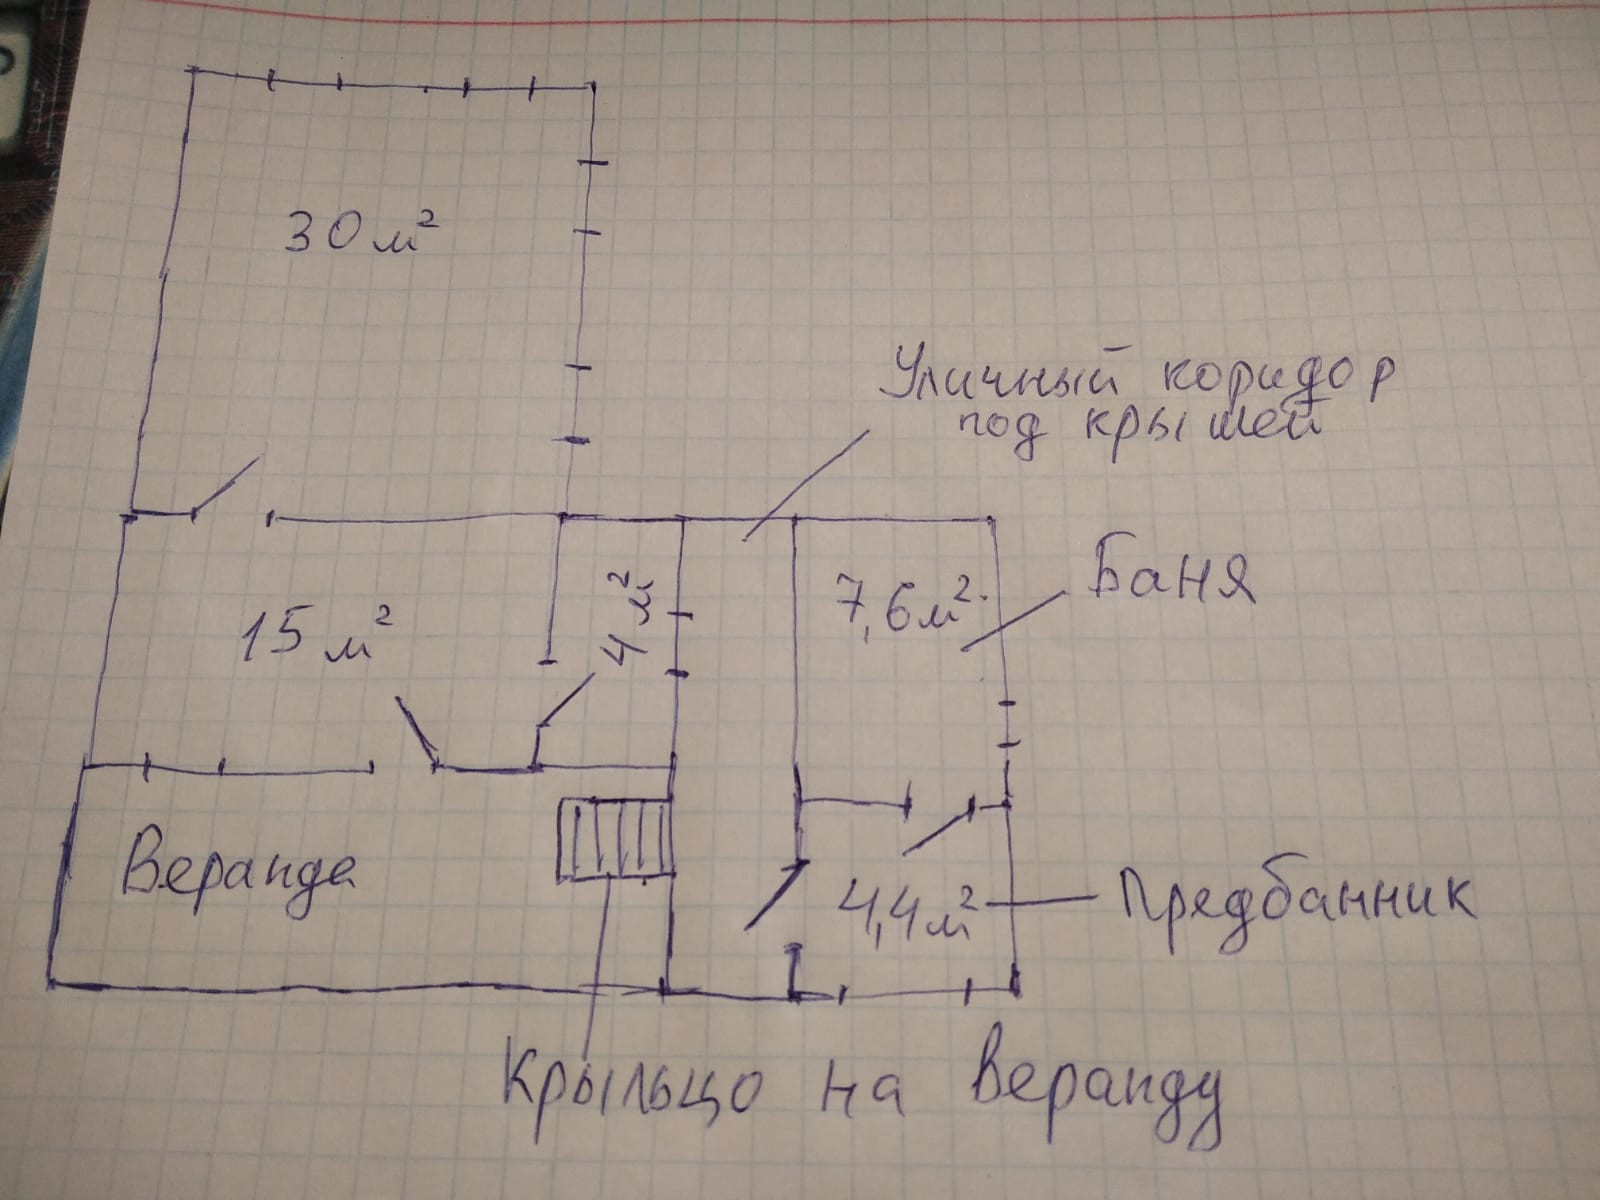 30 м²
Уличный коридор
под крышей
15 м²
4 м²
7,6 м²
Баня
Веранда
4,4 м²
Предбанник
Крыльцо на веранду